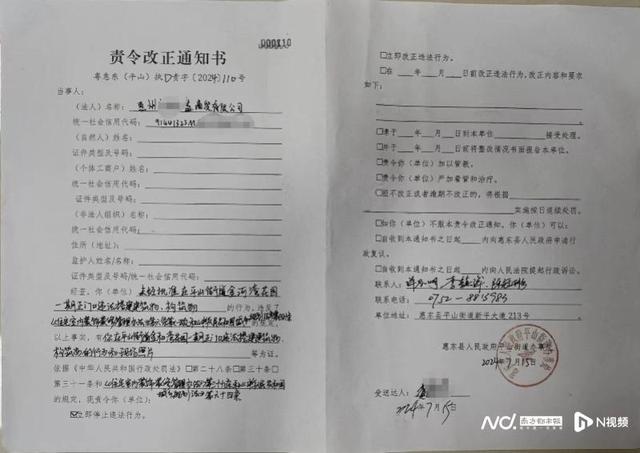 000110
责令改正通知书
粤惠东（平山）执责字〔2024〕110号
当事人：
（法人）名称：惠州 有限公司
统一社会信用代码：91441323M
（自然人）姓名：
证件类型及号码：
（个体工商户）名称：
统一社会信用代码：
证件类型及号码：
（非法人组织）名称：
统一社会信用代码：
住所（地址）：
监护人姓名/名称：
证件类型及号码：
经查，你（单位）未经批准在平山街道金河湾花园
一期正门口违法搭建建筑物、构筑物 的行为，违反了
以上事实，有你在平山街道金河湾花园一期正门口违法搭建建筑物、
构筑物的行为的现场照片 等为证。
依据《中华人民共和国行政处罚法》第二十八条第
三十一条和
的规定，现责令你（单位）：
☑立即停止违法行为。
□立即改正违法行为。
□在 年 月 日前改正违法行为，改正内容和要求
如下：
□请于 年 月 日到本单位 接受处理。
□并于 年 月 日前将整改情况书面报告本单位。
□责令你（单位）加以管教。
□责令你（单位）严加看管和治疗。
□拒不改正或者逾期不改正的，将根据
实施按日连续处罚。
□如你（单位）不服本责令改正通知，你（单位）可以：
□自收到本通知书之日起 内向惠东县人民政府申请行
政复议。
□自收到本通知书之日起 内向人民法院提起行政诉讼。
联系人：
联系电话：0752-8815983
单位地址：惠东县平山街道新平大道213号
惠东县人民政府平山街道办事处
2024年7月15日
受送达人：
2024年7月15日
ND 南方都市报 N视频